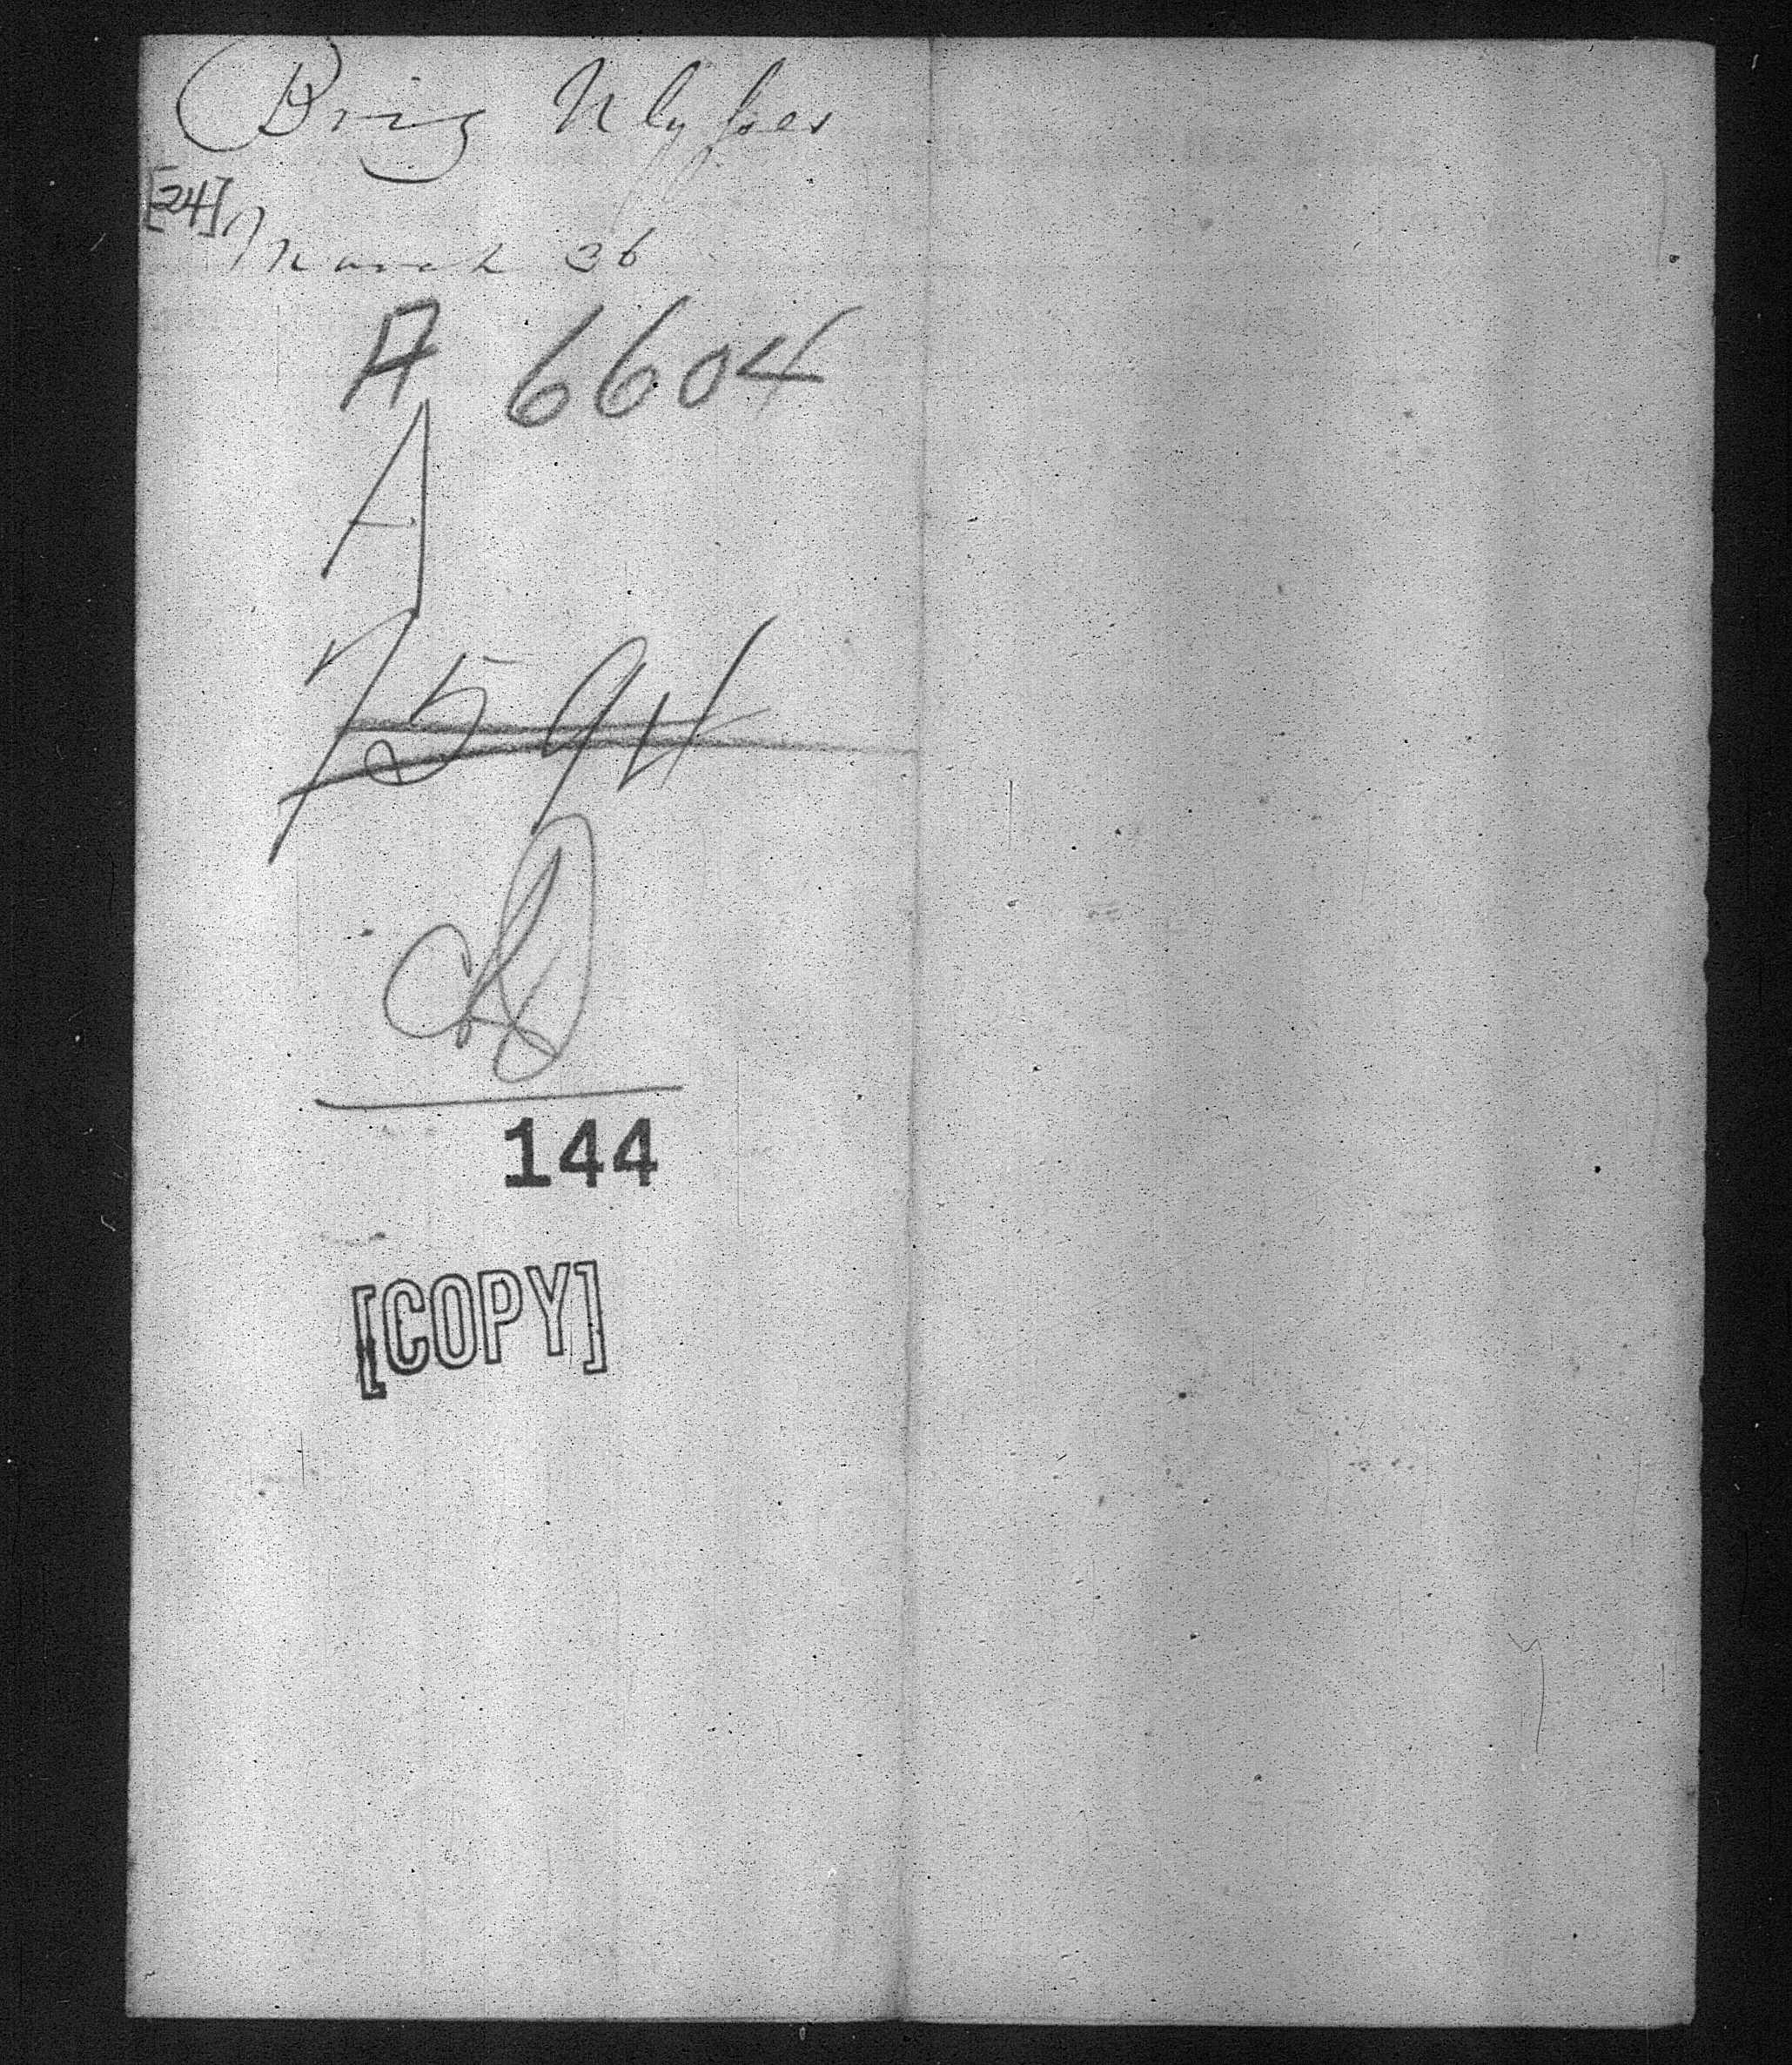 Brig Ulysses
[24]
March 36
A 6604
A
7594
144
[COPY]